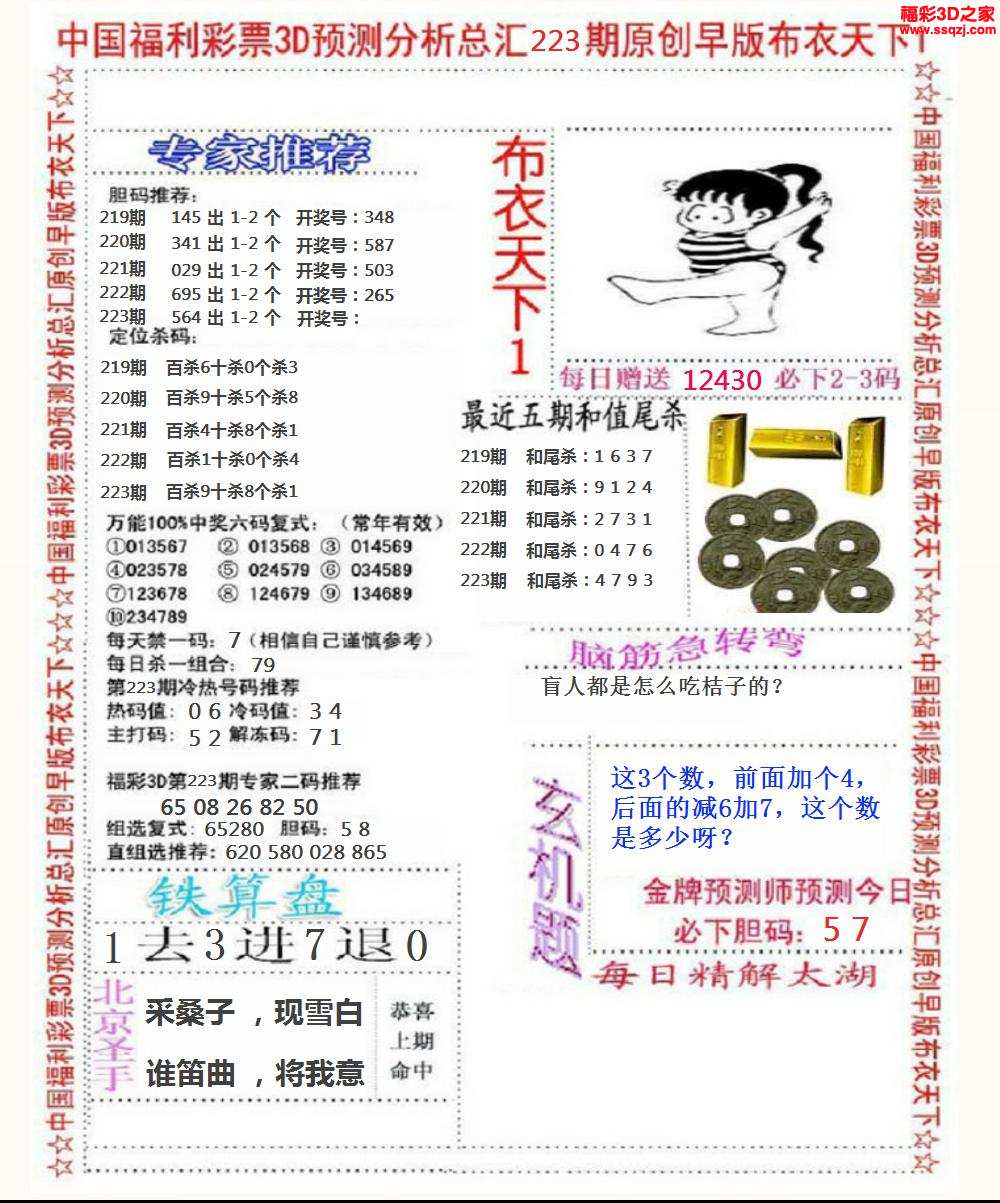 福彩3D之家
www.ssqzj.com
中国福利彩票3D预测分析总汇223期原创早版布衣天下1
☆☆中国福利彩票3D预测分析总汇原创早版布衣天下☆☆中国福利彩票3D预测分析总汇原创早版布衣天下☆☆
专家推荐
胆码推荐:
219期 145 出 1-2 个 开奖号：348
220期 341 出 1-2 个 开奖号：587
221期 029 出 1-2 个 开奖号：503
222期 695 出 1-2 个 开奖号：265
223期 564 出 1-2 个 开奖号：
定位杀码:
219期 百杀6十杀0个杀3
220期 百杀9十杀5个杀8
221期 百杀4十杀8个杀1
222期 百杀1十杀0个杀4
223期 百杀9十杀8个杀1
万能100%中奖六码复式：（常年有效）
①013567 ② 013568 ③ 014569
④023578 ⑤ 024579 ⑥ 034589
⑦123678 ⑧ 124679 ⑨ 134689
⑩234789
每天禁一码：7（相信自己谨慎参考）
每日杀一组合：79
第223期冷热号码推荐
热码值：0 6 冷码值：3 4
主打码：5 2 解冻码：7 1
福彩3D第223期专家二码推荐
65 08 26 82 50
组选复式：65280 胆码：5 8
直组选推荐：620 580 028 865
铁算盘
1去3进7退0
北京圣手
采桑子 ，现雪白
谁笛曲 ，将我意
恭喜
上期
命中
布衣天下1
每日赠送 12430 必下2-3码
最近五期和值尾杀
219期 和尾杀：1 6 3 7
220期 和尾杀：9 1 2 4
221期 和尾杀：2 7 3 1
222期 和尾杀：0 4 7 6
223期 和尾杀：4 7 9 3
脑筋急转弯
盲人都是怎么吃桔子的？
玄机题
这3个数，前面加个4，
后面的减6加7，这个数
是多少呀？
金牌预测师预测今日
必下胆码：5 7
每日精解太湖
☆☆中国福利彩票3D预测分析总汇原创早版布衣天下☆☆中国福利彩票3D预测分析总汇原创早版布衣天下☆☆